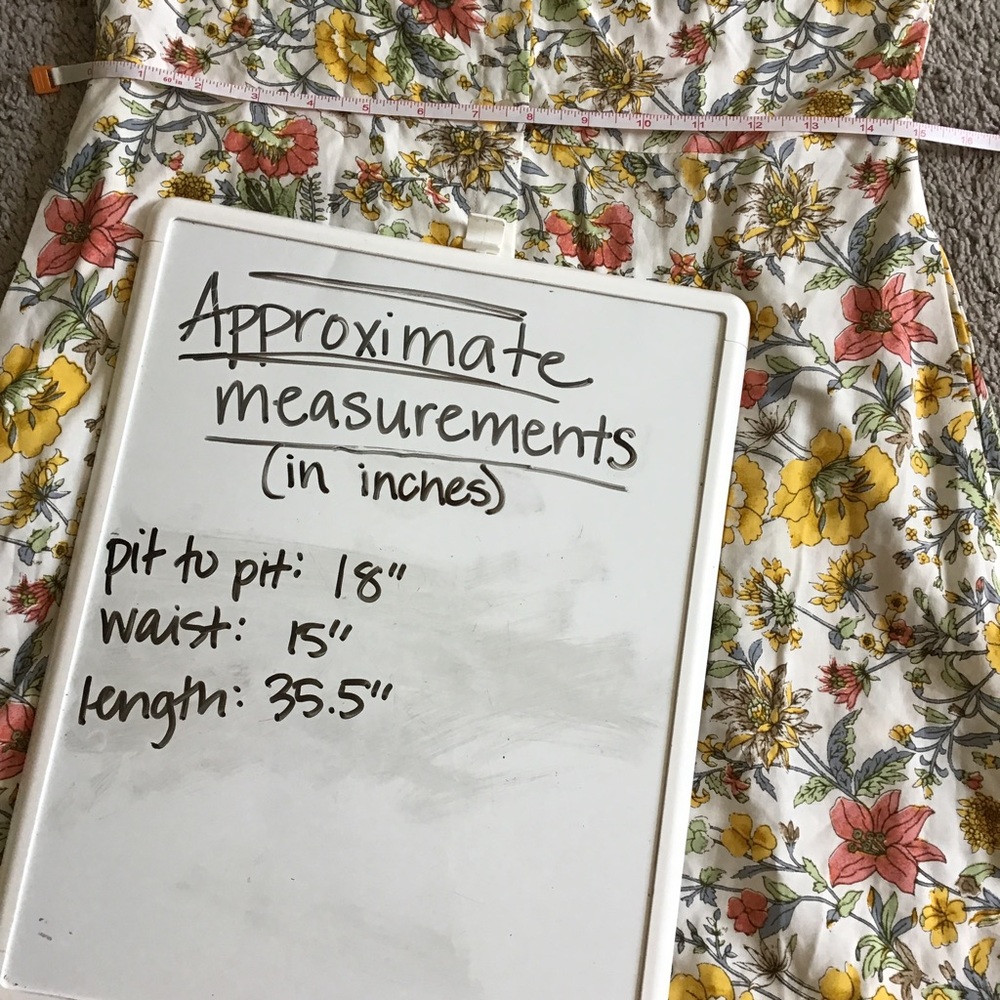 1 2 3 4 5 6 7 8 9 10 11 12 13 14 15 16
Approximate
measurements
(in inches)
pit to pit: 18"
waist: 15"
length: 35.5"